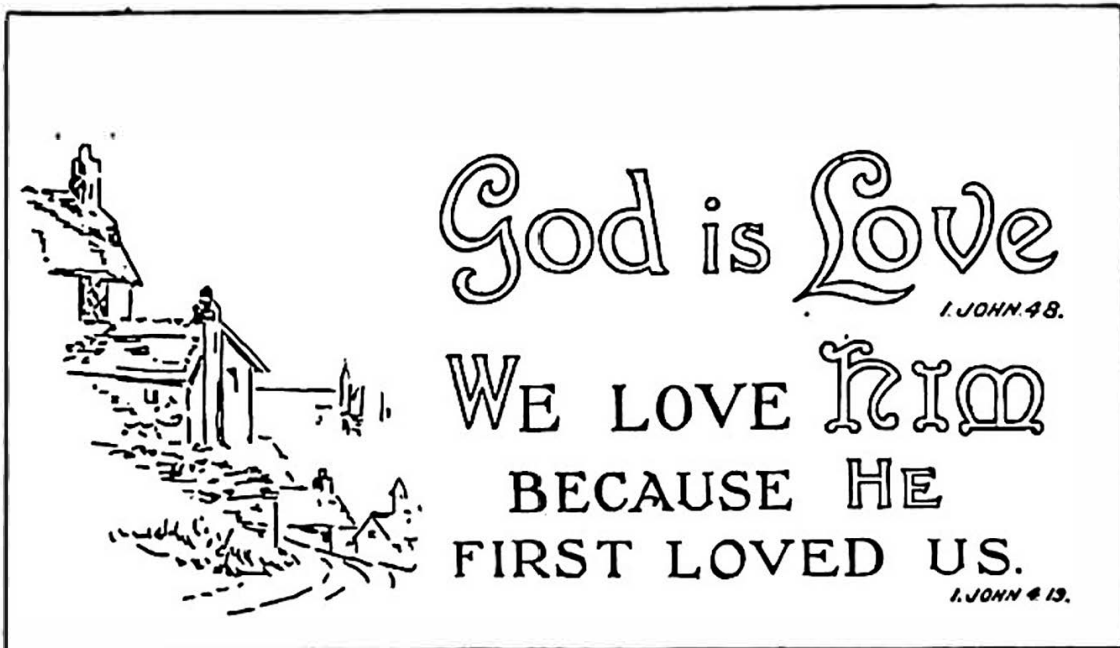 God is Love
I. JOHN. 4 8.
WE LOVE HIM
BECAUSE HE
FIRST LOVED US.
I. JOHN 4 19.